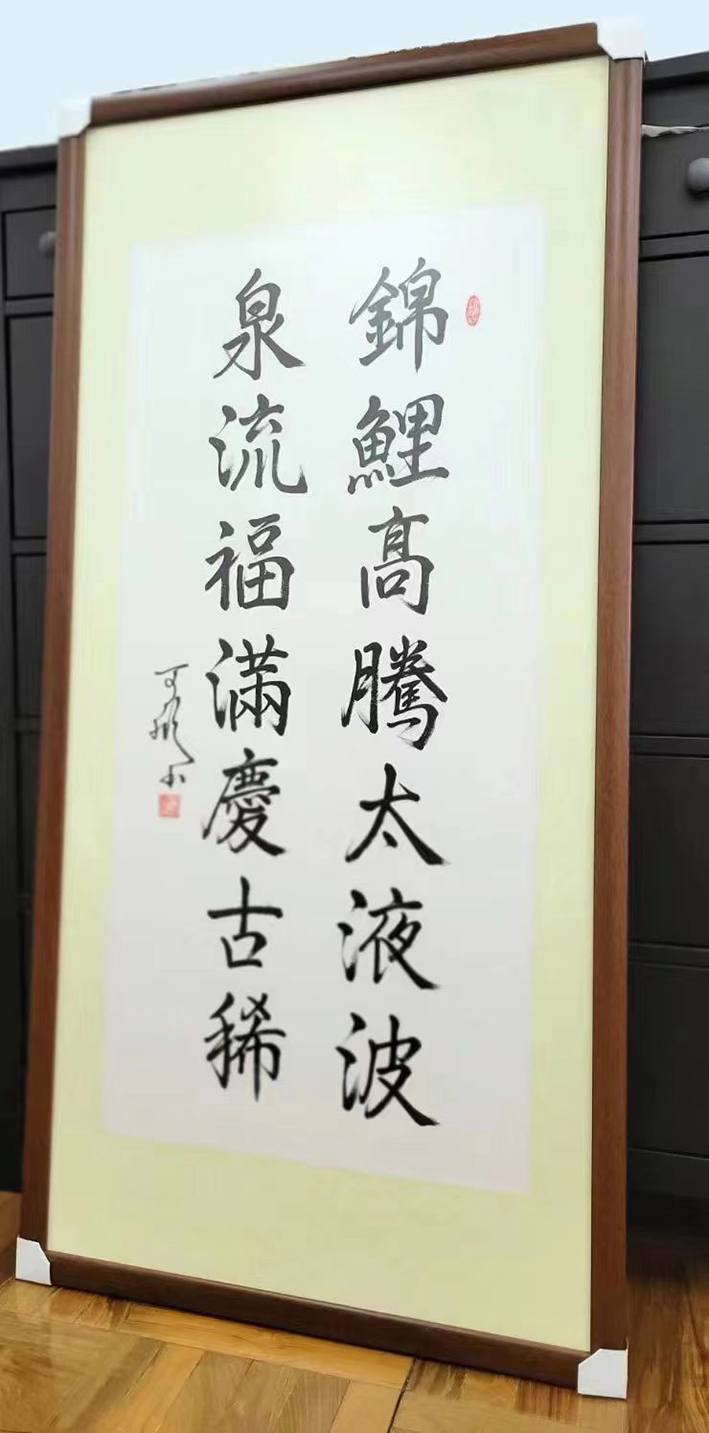 錦鯉高騰太液波
泉流福滿慶古稀